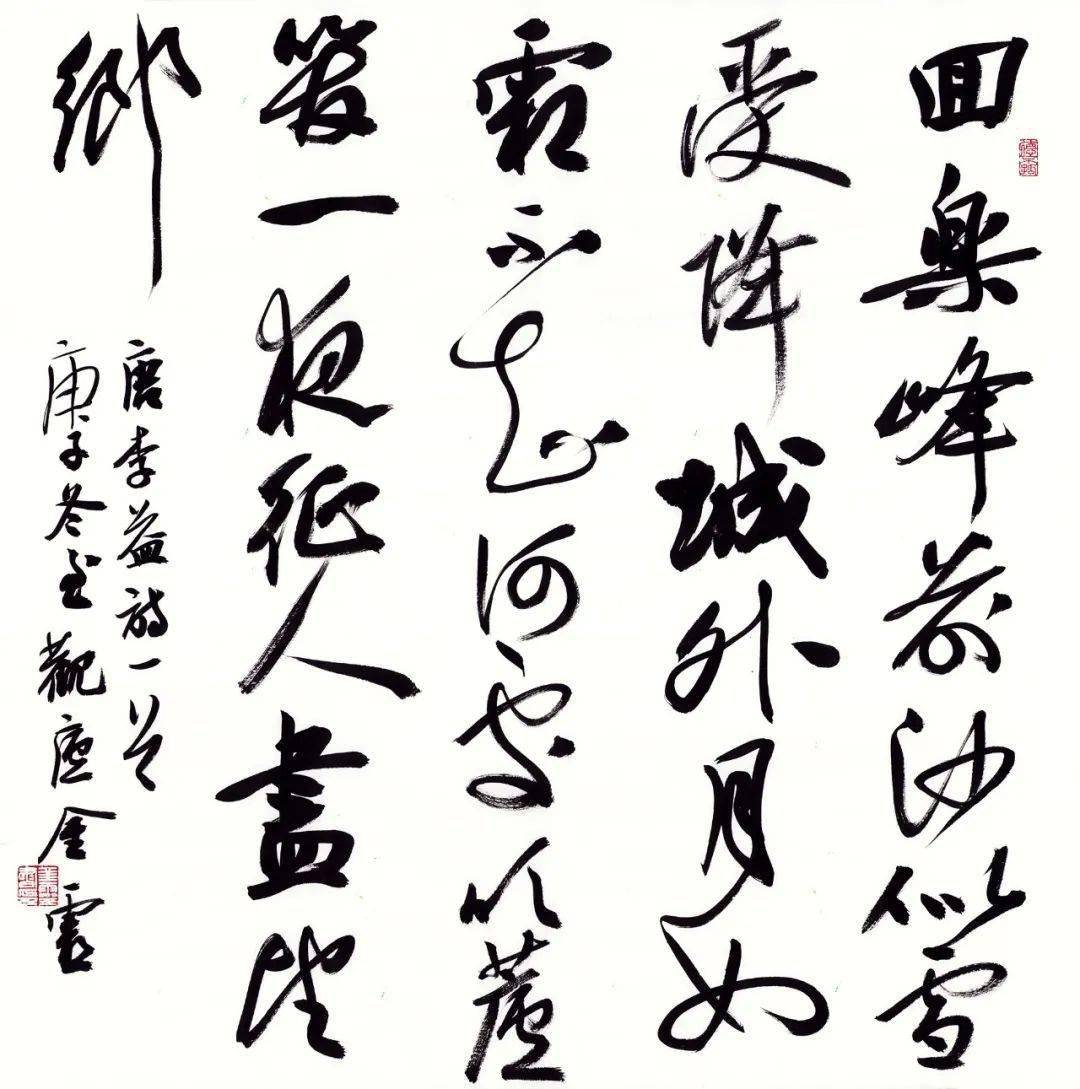 回樂峰前沙似雪
受降城外月如
霜不知何處吹蘆
管一夜征人盡望
鄉
唐李益詩一首
庚子冬至觀金